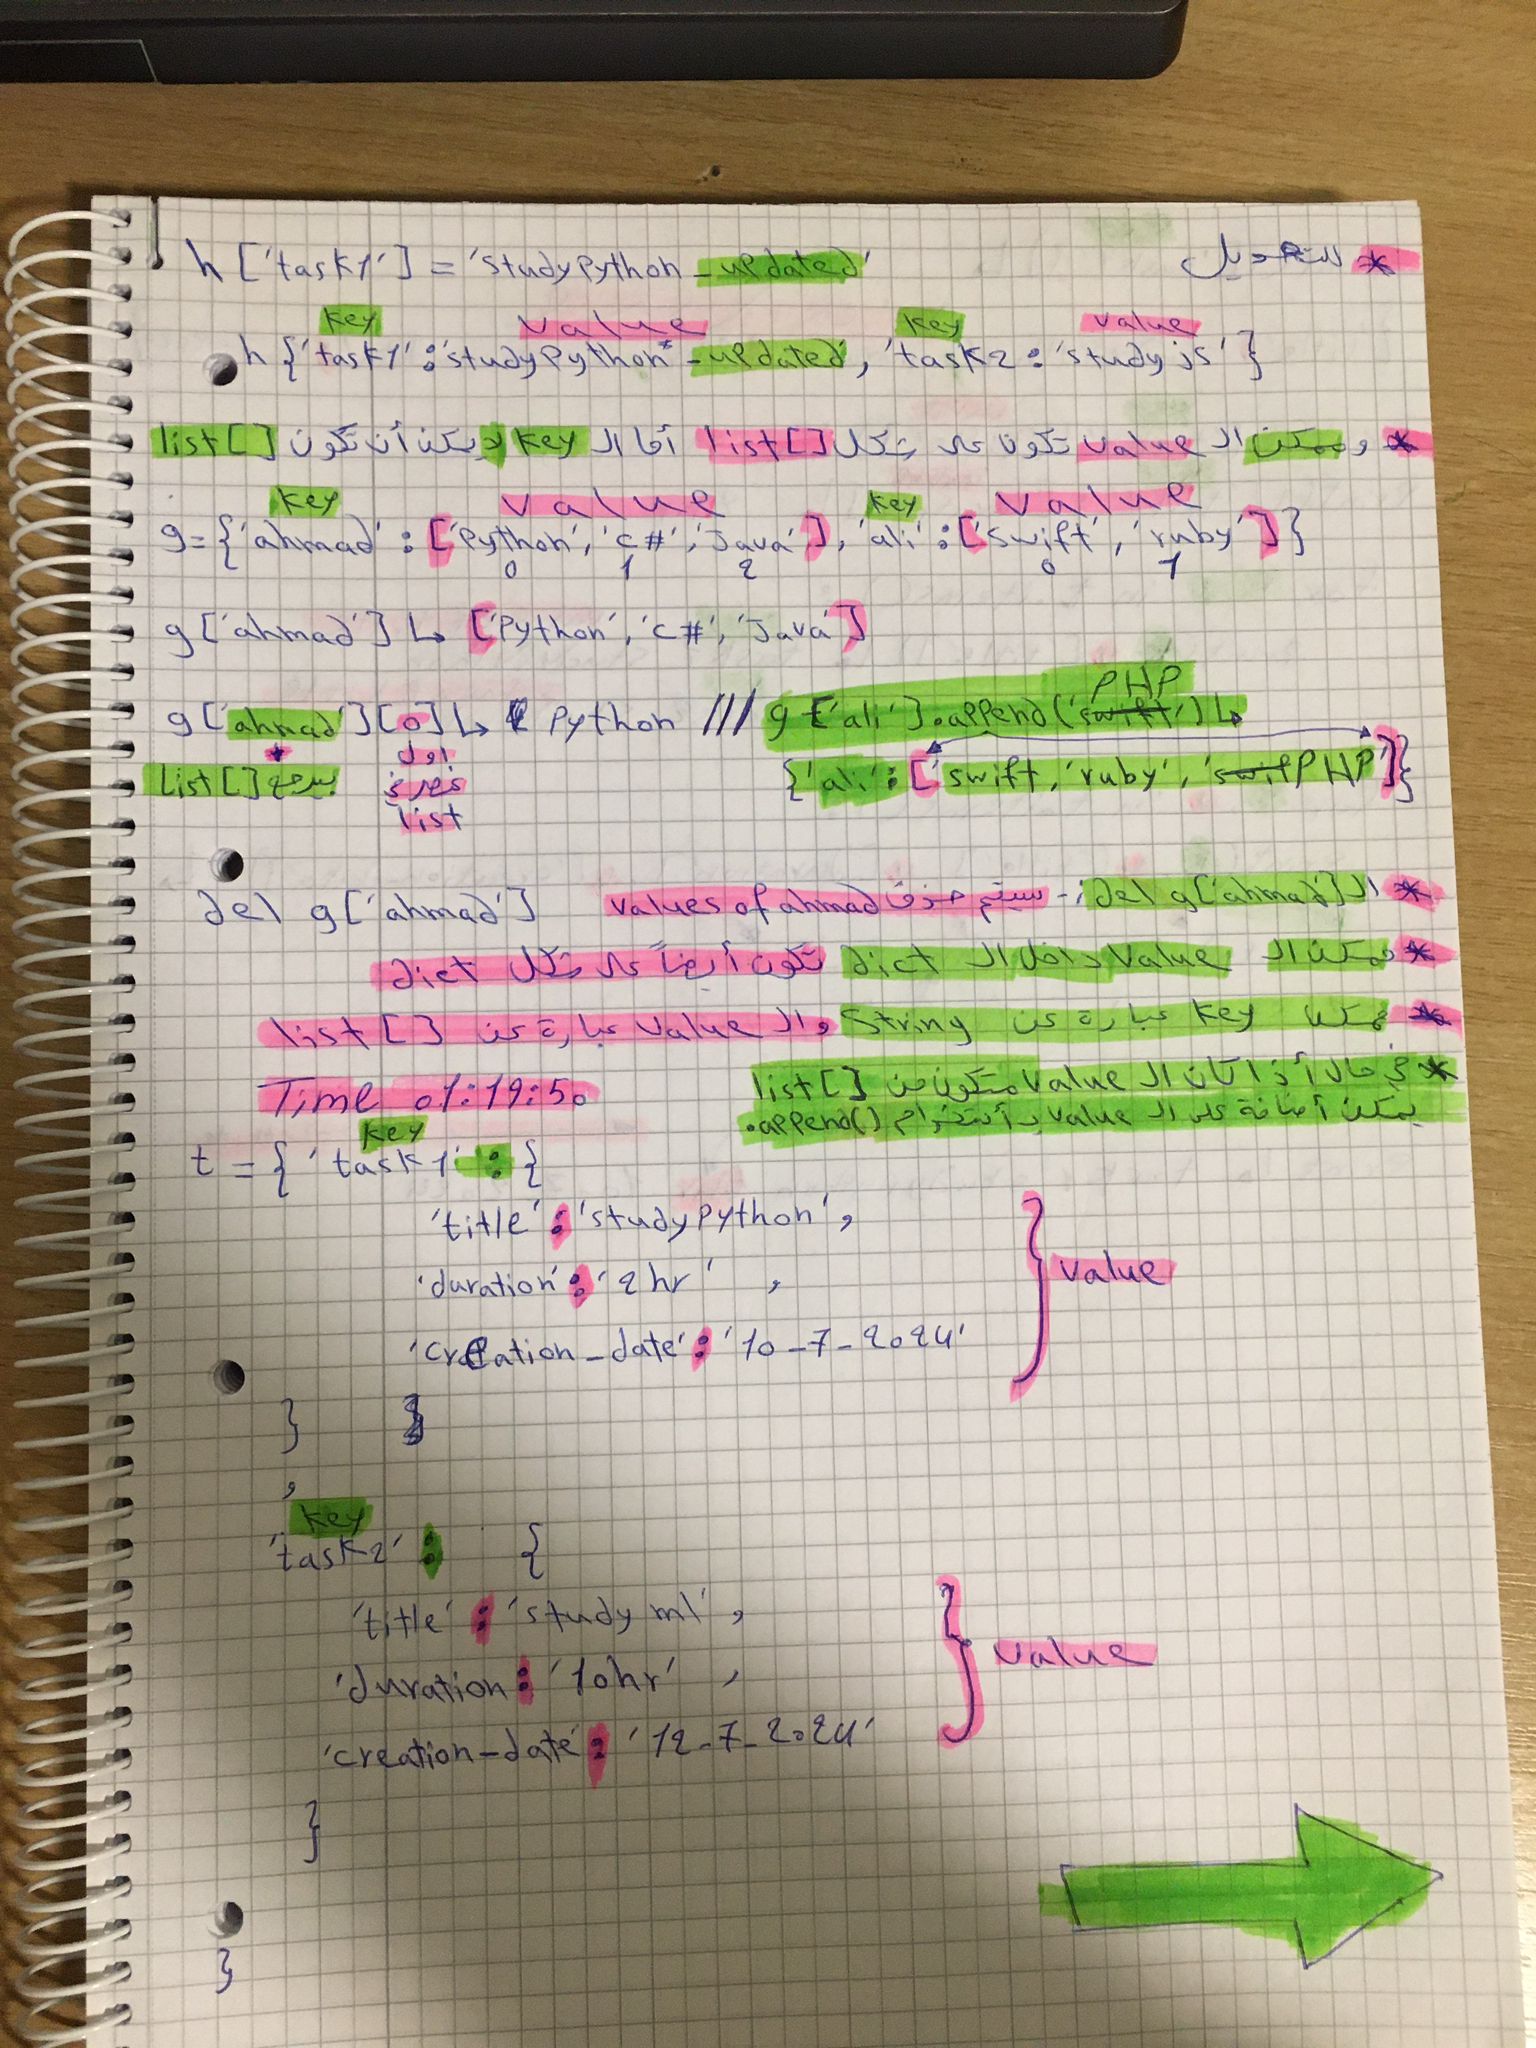 h['task1'] = 'studypython_updated' * للتعديل
key value key value
h{'task1':'studypython"_updated', 'task2: 'study js'}
* وممكن الـ value تكون على شكل list[] أما الـ key لا يمكن أن تكون list[]
key value key value
g={'ahmad':['Python','c#','Java'], 'ali':['swift','ruby']}
0 1 2 0 1
g['ahmad'] ↳ ['Python','c#','Java']
PHP
g['ahmad'][0]↳ Python /// g['ali'].append('swift')↳
يرجع list[] اول
{'ali':['swift,'ruby','swif PHP']}
list
del g['ahmad'] * الـ del g['ahmad] :- سيتم حذف values of ahmad
* ممكن الـ Value داخل الـ dict تكون أيضاً على شكل dict
* ممكن key عبارة عن String والـ value عبارة عن list[]
* في حال أذا كان الـ value متكون من list[]
Time 01:19:50
يمكن أضافة على الـ value بأستخدام append().
key
t = { 'task1' : {
'title' : 'studypython',
'duration' : '2hr' ,
value
'creation_date' : '10-7-2024'
} }
,
key
'task2' : {
'title' : 'study ml',
'duration : '10hr' ,
value
'creation-date' : '12-7-2024'
}
}